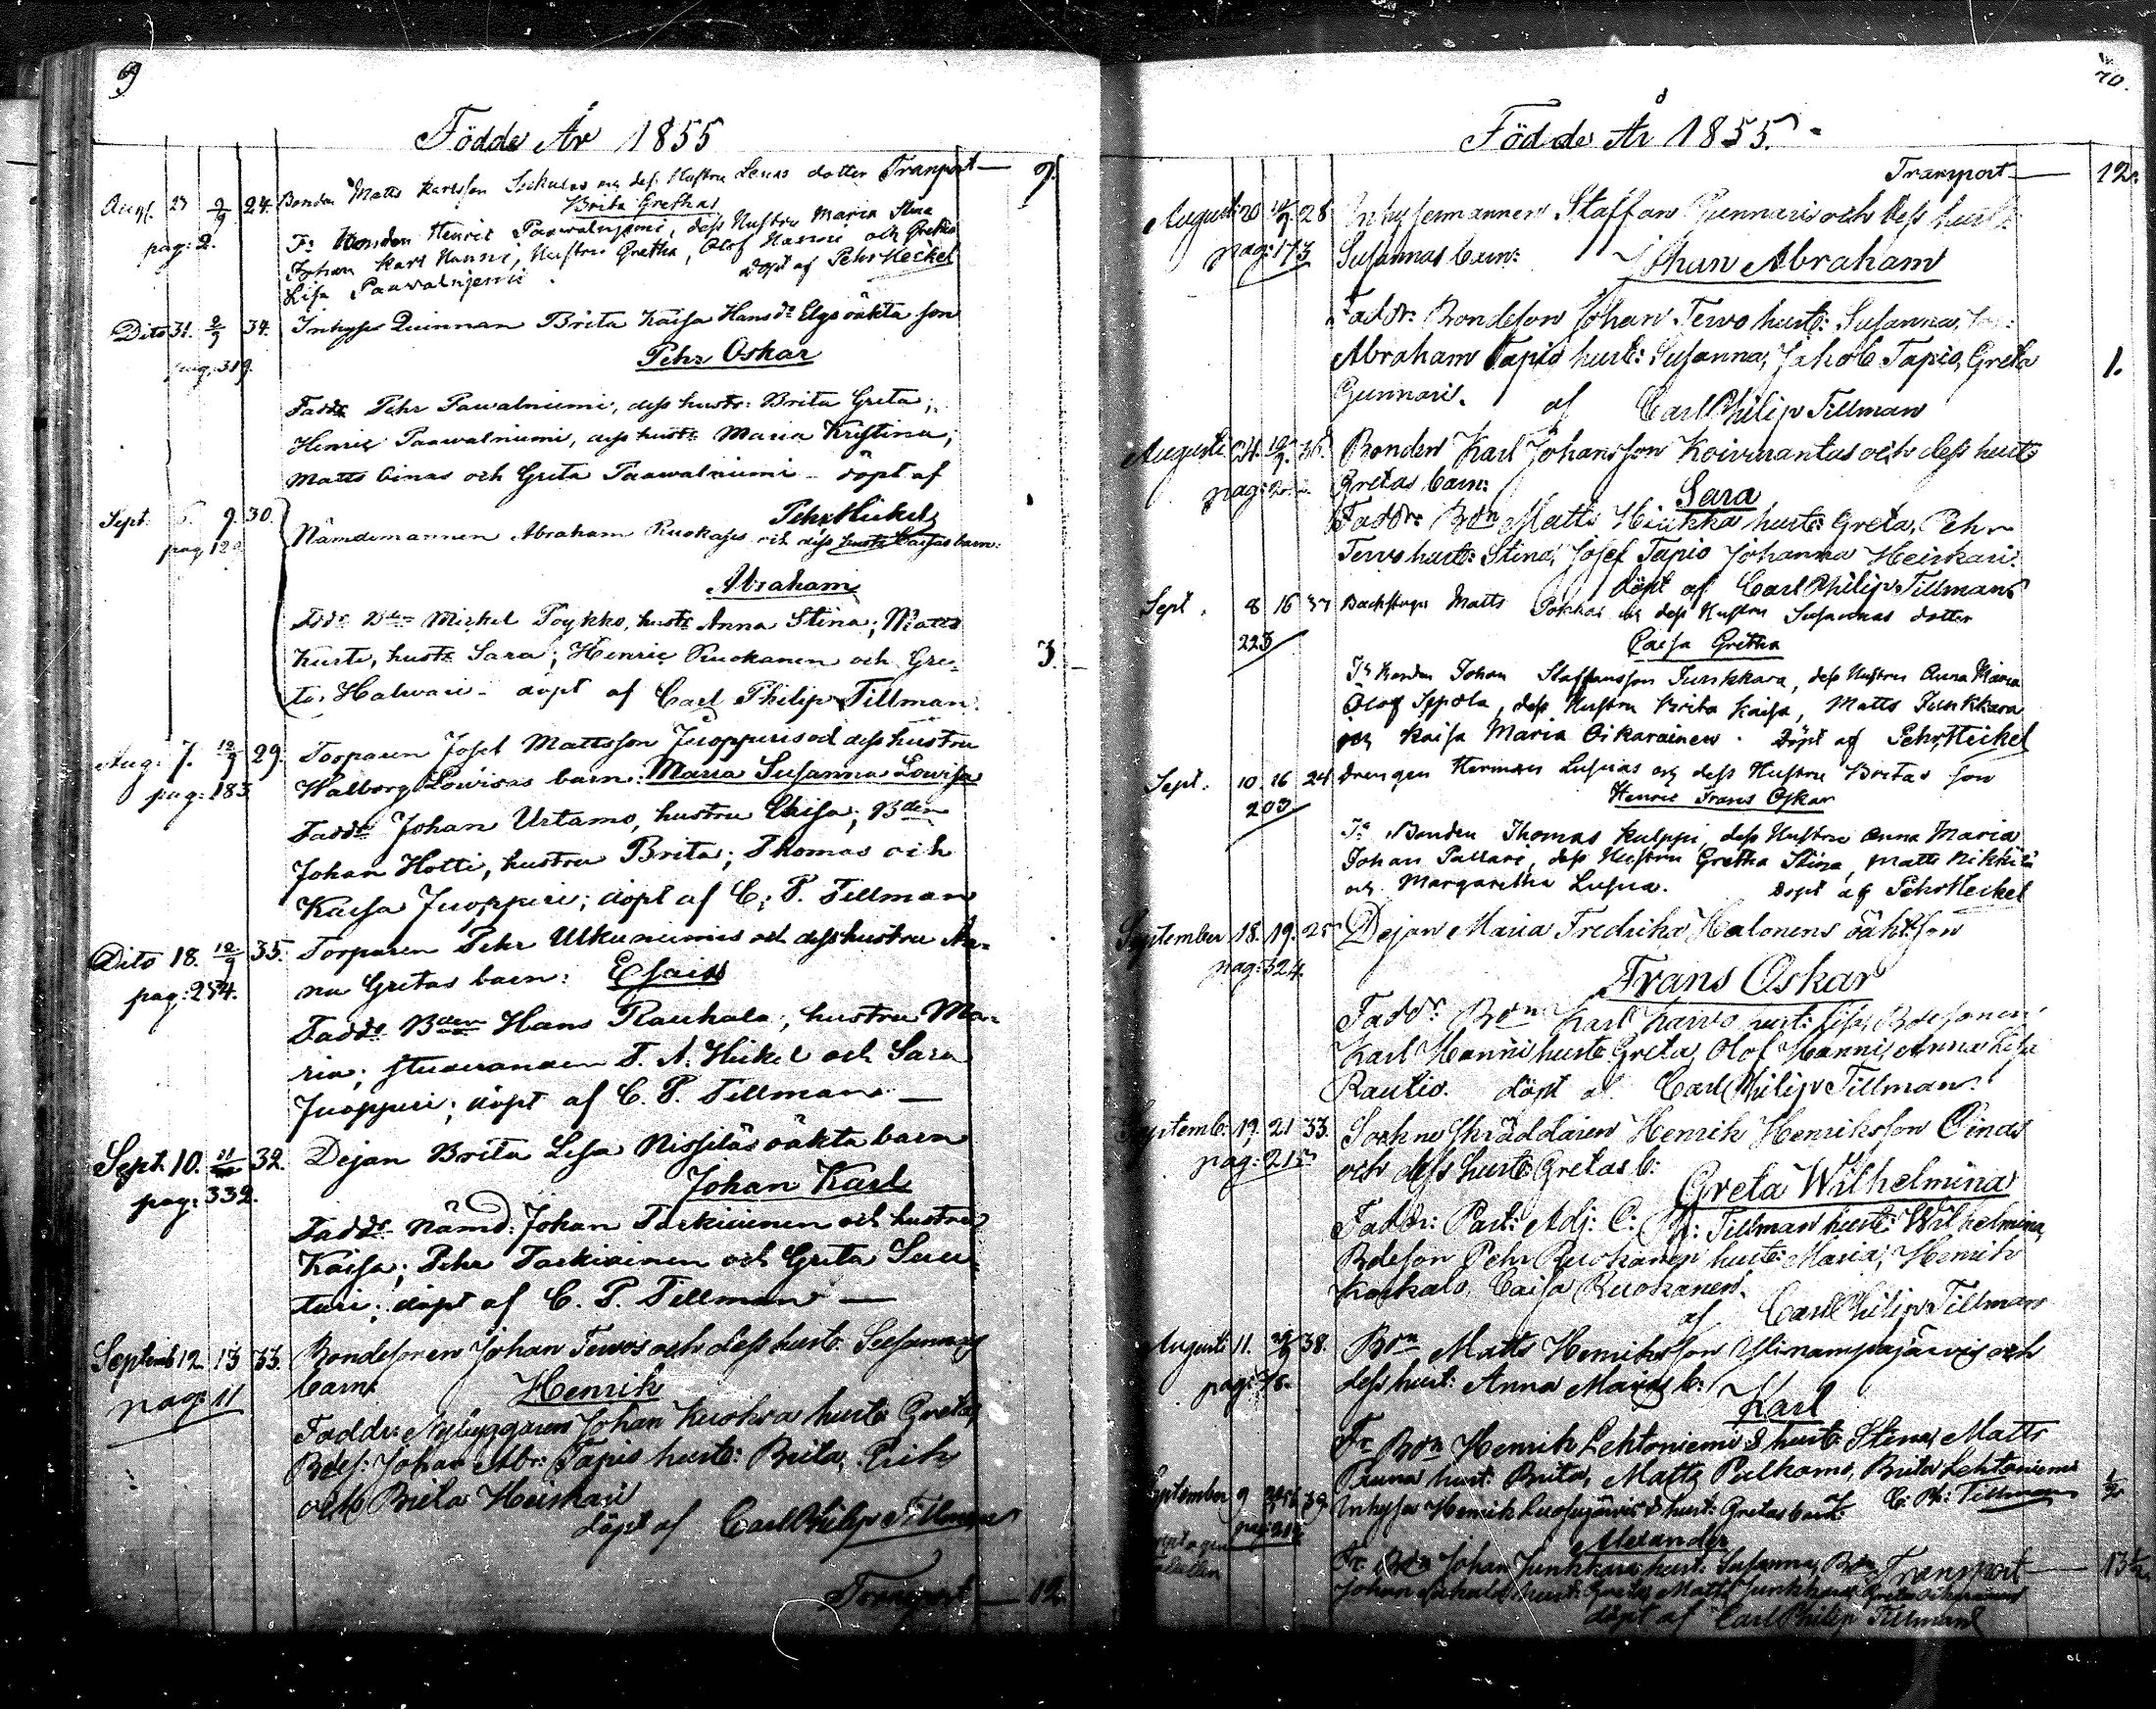 9
Födde År 1855
Transport — 9.
Aug. 23 2/9 24. Bonden Matts Karlsson och dess Hustru Lenas dotter
pag: 2. Brita Grethas
Fr Bonden Henric Paawalniemi, dess Hustru Maria Stina
Johan Karl Hanni, Hustru Gretha, Olof Hanni och Gretha
Lisa Paawalniemi. döpt af Pehr Heickel
Dito 31. 2/9 34. Inhyses Quinnan Brita Kaisa Hansdr Elgs oäkta son
pag: 319. Pehr Oskar
Faddr Pehr Pawalniemi, dess hustr: Brita Greta;
Henric Paawalniemi, dess hustr Maria Kristina;
Matts Oinas och Greta Paawalniemi döpt af
Pehr Heickel
Sept. 6. 9. 30. Nämdemannen Abraham Ruokajes och dess hustr Caisas barn:
pag 129
Abraham
Fddr Bden Mickel Poykko, hustr Anna Stina; Matts
Kusti, hustr Sara; Henric Ruokanen och Gre- 3. —
ta Halwari - döpt af Carl Philip Tillman.
Aug: 7. 12/9 29. Torparen Josef Mattsson Juopperis och dess hustru
pag: 183 Walborg Lowisas barn: Maria Susanna Lowisa
Faddr Johan Urtamo, hustru Caisa; Bden
Johan Hotti, hustru Brita; Thomas och
Kaisa Juopperi; döpt af C: P. Tillman
Dito 18. 12/9 35. Torparen Pehr Ulkuniemis och dess hustru An-
pag: 254. na Gretas barn: Esaias
Faddr Bden Hans Rauhala; hustru Ma-
ria; studeranden F. A. Heickel och Sara
Juopperi; döpt af C. P. Tillman —
Sept. 10. 11 32. Dejan Brita Lisa Nissiläs oäkta barn
pag: 332. Johan Karl
Faddr Nämd: Johan Taskinen och hustru
Kaisa; Pehr Taskiainen och Greta Suu-
turi; döpt af C. P. Tillman —
Septemb 12. 13 33. Bondesonen Johan Tervos och dess hust: Susannas
pag: 11 barn: Henrik
Faddr: Nybyggaren Johan Kuoksa hustr Greta,
Bdes: Johan Abr: Tapio hustr: Brita, Erik
och Brita Heiskari
döpt af Carl Philip Tillman
Transport — 12.
10.
Födde År 1855.
Transport — 12.
Augusti 20 12/9 28 Inhysesmannen Staffan Gunnaris och dess hust:
pag: 173 Susannas barn: Johan Abraham
Faddr: Bondeson Johan Tervo hust: Susanna,
Abraham Tapio hust: Susanna, Jakob Tapio, Greta 1.
Gunnari. af Carl Philip Tillman
Augusti 24. 12/9. 36. Bonden Karl Johansson Koivurantas och dess hustr
pag: Gretas barn: Sara
Faddr: Bdn Matts Hiukka hustr Greta, Pehr
Tervo hust: Stina, Josef Tapio Johanna Heiskari.
döpt af Carl Philip Tillman
Sept. 8 16 37 Backstugu Matts Pokkas och dess Hustru Susannas dotter
223 Caisa Gretha
Fr Bonden Johan Staffansson Junkkara, dess Hustru Anna Maria
Olof Seppola, dess Hustru Brita Kaisa, Matts Junkkara
och Kaisa Maria Oikarainen. döpt af Pehr Heickel
Sept. 10. 16 24 Drengen Herman Lusuas och dess Hustru Britas son
203 Henric Frans Oskar
Fr Bonden Thomas Kulppi, dess Hustru Anna Maria
Johan Pallari, dess Hustru Gretha Stina, Matts Nikkilä
och Margaretha Lusua. döpt af Pehr Heickel
September 18. 19. 25 Dejan Maria Fredrika Halonens oäkt: son
pag: 324. Frans Oskar
Faddr: Bdn Karl Karvo hust: Lisa, Bdesonen
Karl Hanni hustr Greta, Olof Hanni, Anna Lisa
Rautio. döpt af Carl Philip Tillman.
Septemb: 19. 21 33. Sockne Skräddaren Henrik Henriksson Oinas
pag: 215 och dess hust: Gretas b: Greta Wilhelmina
Faddr: Past: Adj: C: Ph: Tillman hustr: Wilhelmina,
Bdeson Pehr Ruokanen hust: Maria, Henrik
Koskalo, Caisa Ruokanen.
af Carl Philip Tillman
Augusti 11. 38. Bdn Matts Henriksson Ylinampajärvis och
dess hust: Anna Marias b: Karl
Fr Bdn Henrik Lehtoniemi & hustr Stina, Matts
Pruna hust: Brita, Matts Pulkamo, Brita Lehtoniemi
C: Ph: Tillman 1/2
September 9 39. Inhyses Henrik Luosujärvis & hust: Gretas barn:
Alexander
Fr: Bdn Johan Junkkara hust: Susanna, Bdn Transport — 13 1/2
Johan hust: Greta, Matts Junkkara
döpt af Carl Philip Tillman